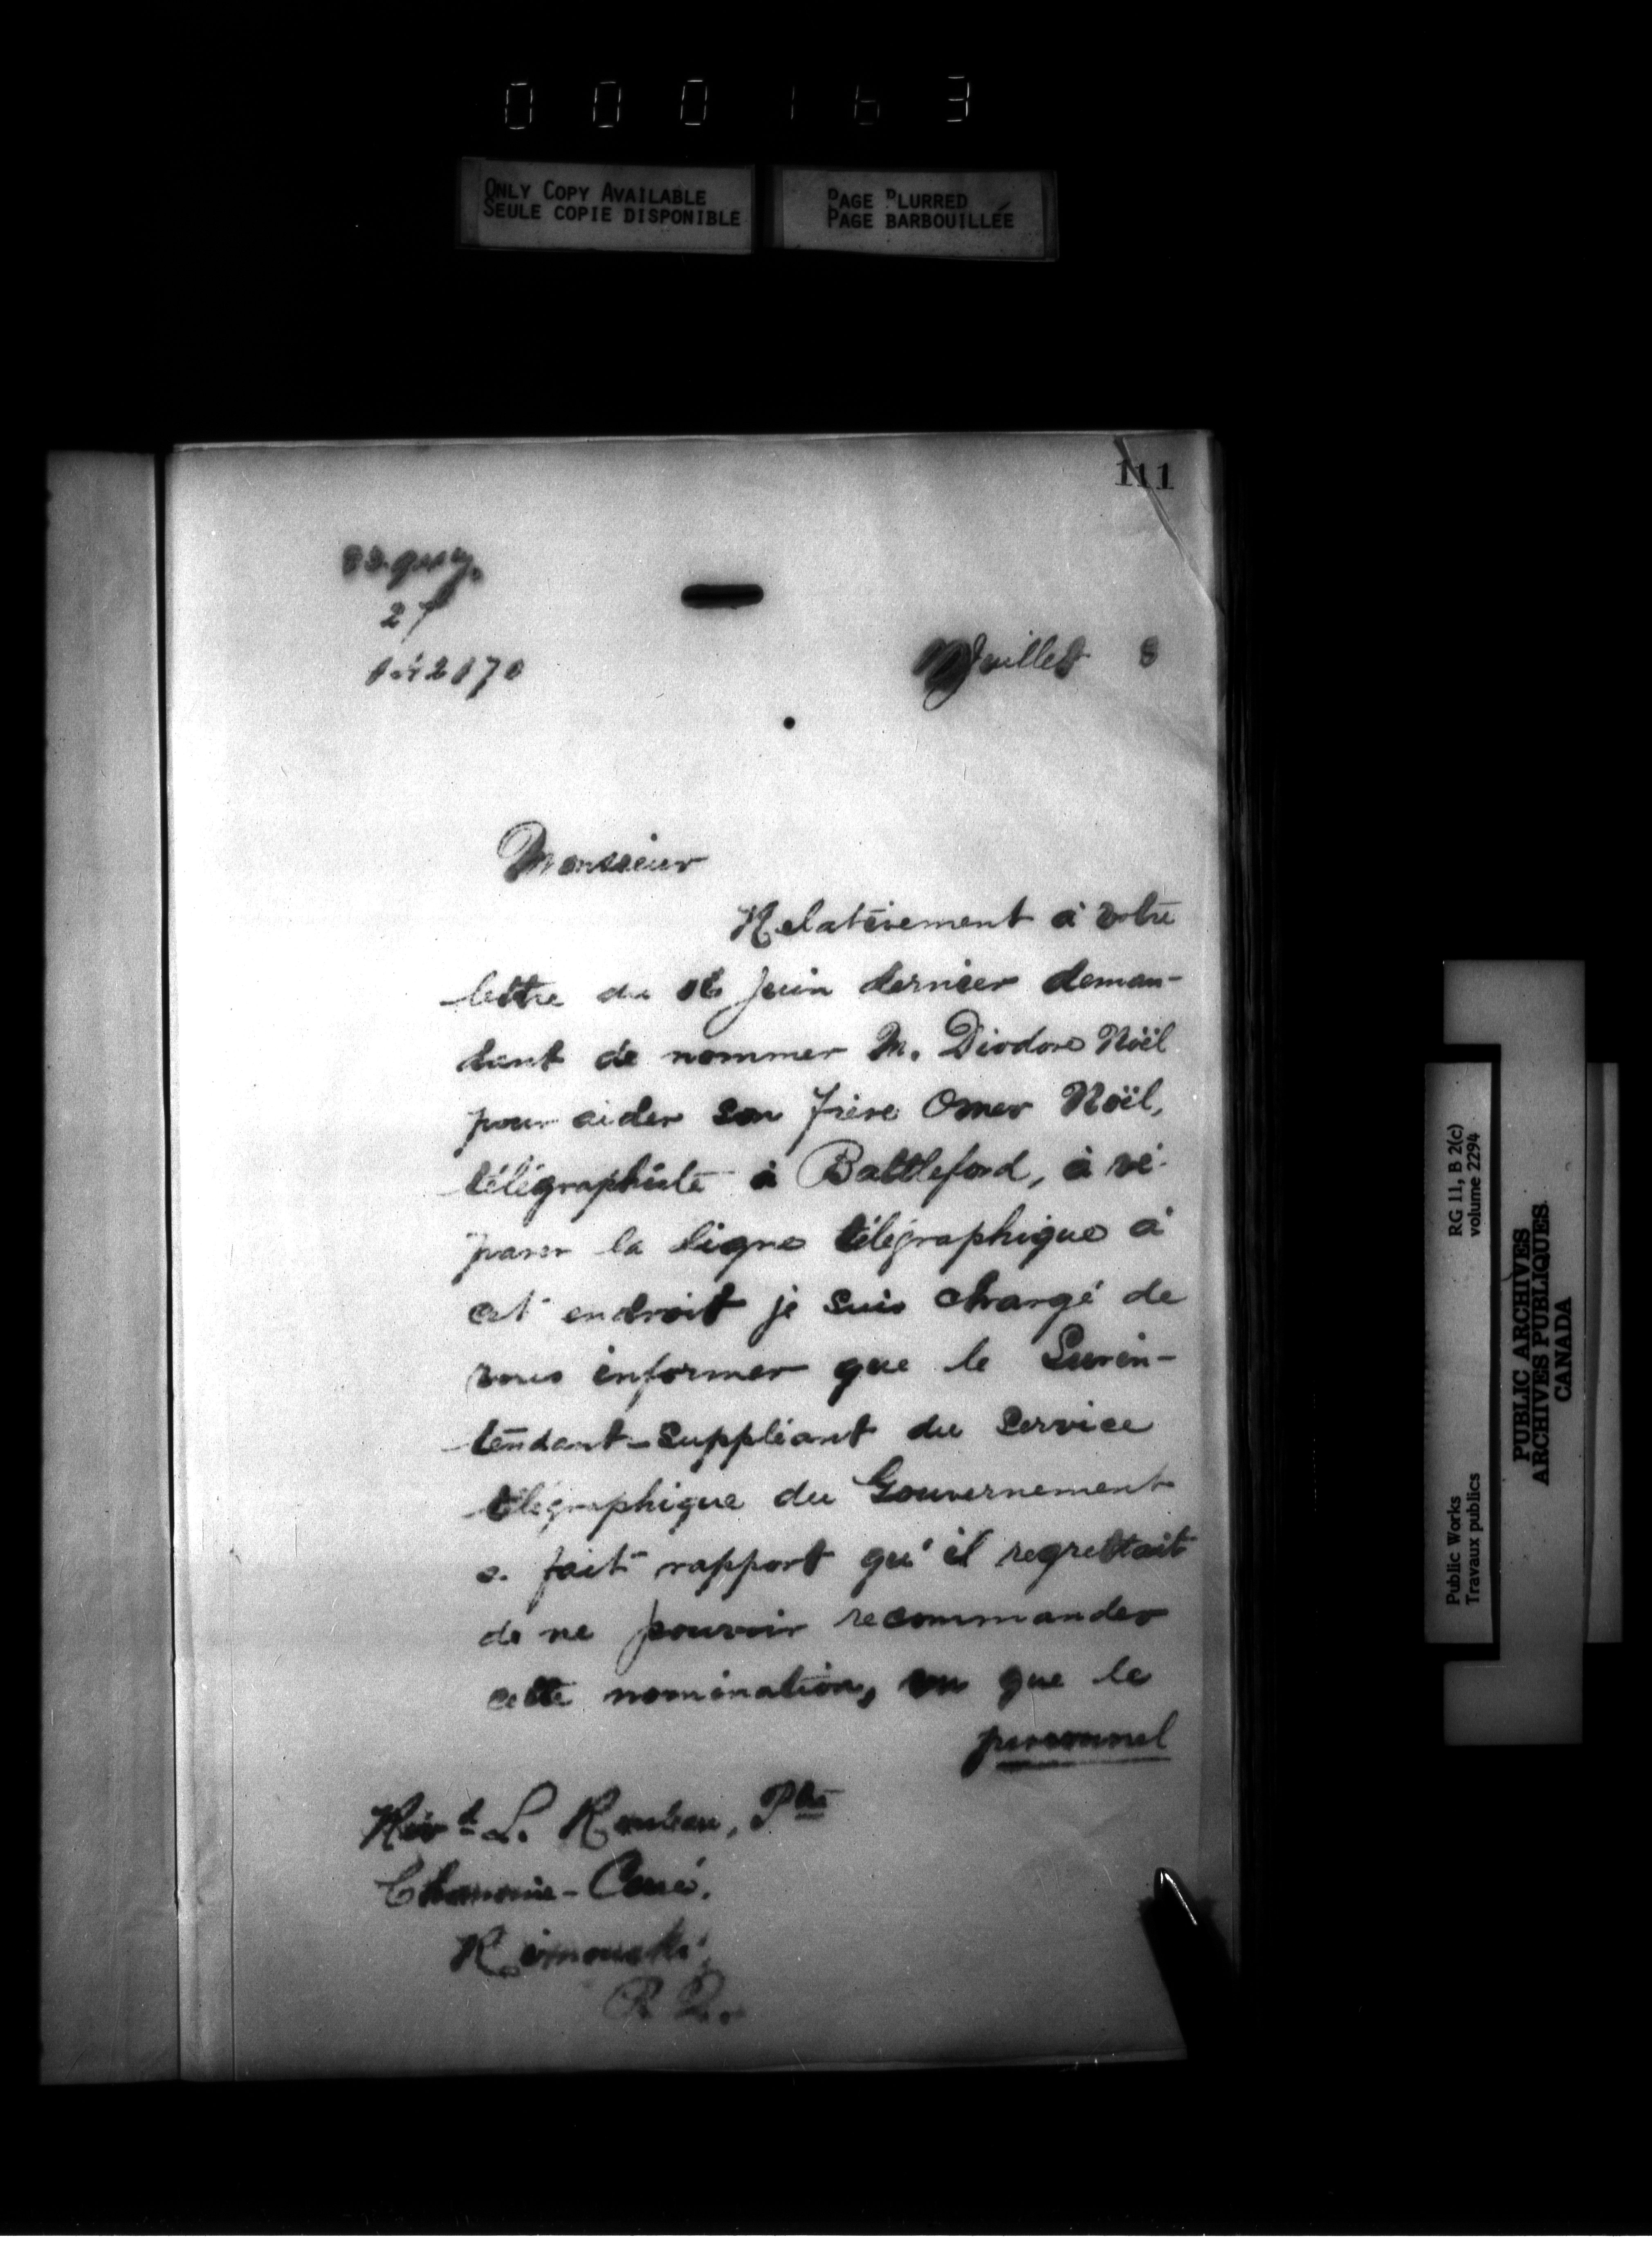 000163
ONLY COPY AVAILABLE
SEULE COPIE DISPONIBLE
PAGE BLURRED
PAGE BARBOUILLÉE
111
27
Juillet 8
Monsieur
Relativement à votre
lettre du juin dernier deman-
dant de nommer M. Diodore Noël
pour aider son frère Omer Noël,
télégraphiste à Battleford, à ré-
parer la ligne télégraphique à
cet endroit je suis chargé de
vous informer que le Surin-
tendant-Suppléant du Service
télégraphique du Gouvernement
a fait rapport qu'il regrettait
de ne pouvoir recommander
cette nomination, vu que le
personnel
Révd L. Rouleau, Ptre
Chanoine-Curé,
Rimouski,
P.Q.
Public Works
Travaux publics
RG 11, B 2(c)
volume 2294
PUBLIC ARCHIVES
ARCHIVES PUBLIQUES
CANADA